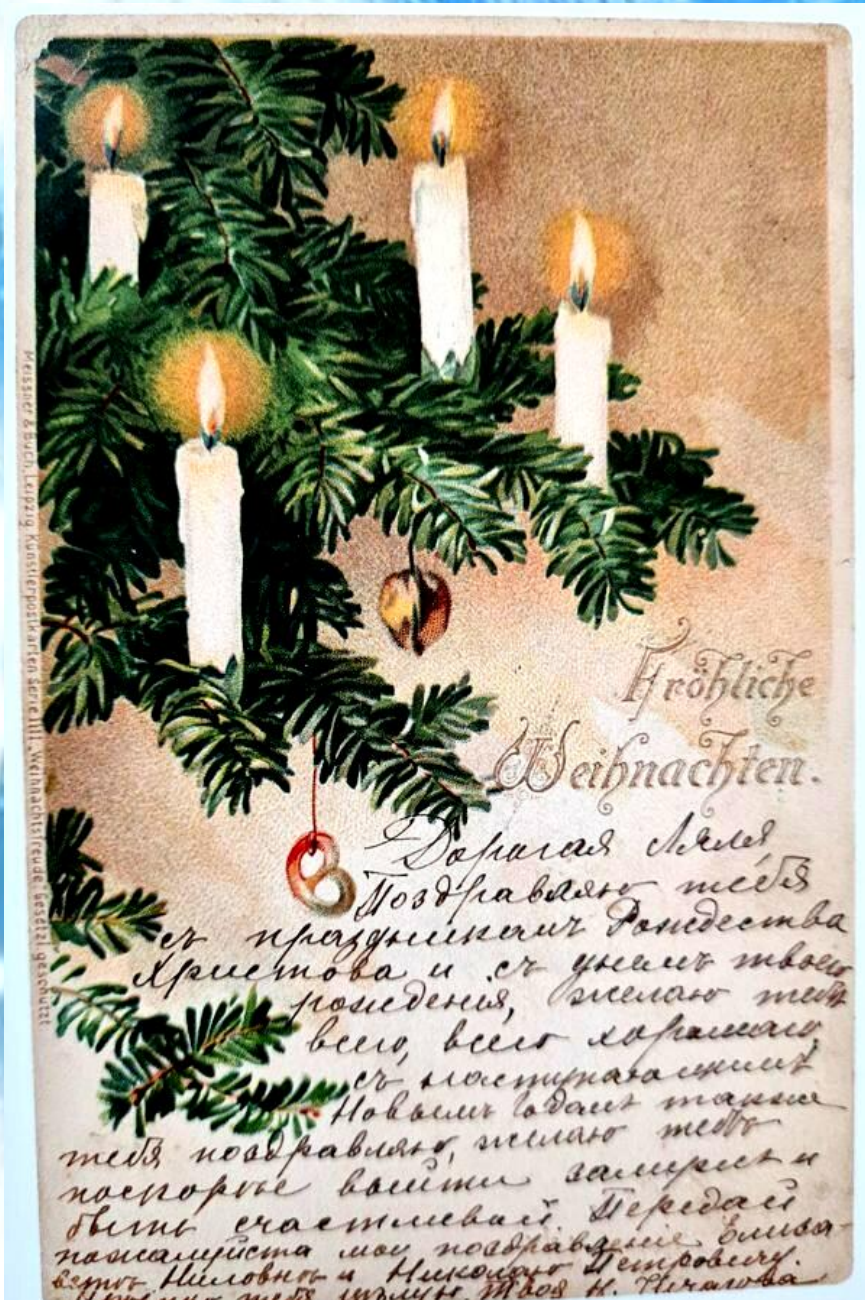 Meissner & Buch, Leipzig. Künstlerpostkarten Serie "Weihnachtsfreude" Gesetzl. geschützt
Fröhliche
Weihnachten.
Дорогая Ляля
Поздравляю тебя
съ праздникомъ Рождества
Христова и съ днемъ твоего
рожденія, желаю тебѣ
всего, всего хорошаго,
съ наступающимъ
Новымъ Годомъ также
тебя поздравляю, желаю тебѣ
поскорѣе выйти замужъ и
быть счастливой. Передай
пожалуйста мои поздравленія Елиза-
ветѣ Ниловнѣ и Николаю Петровичу.
тебя цѣлую Твоя Н.